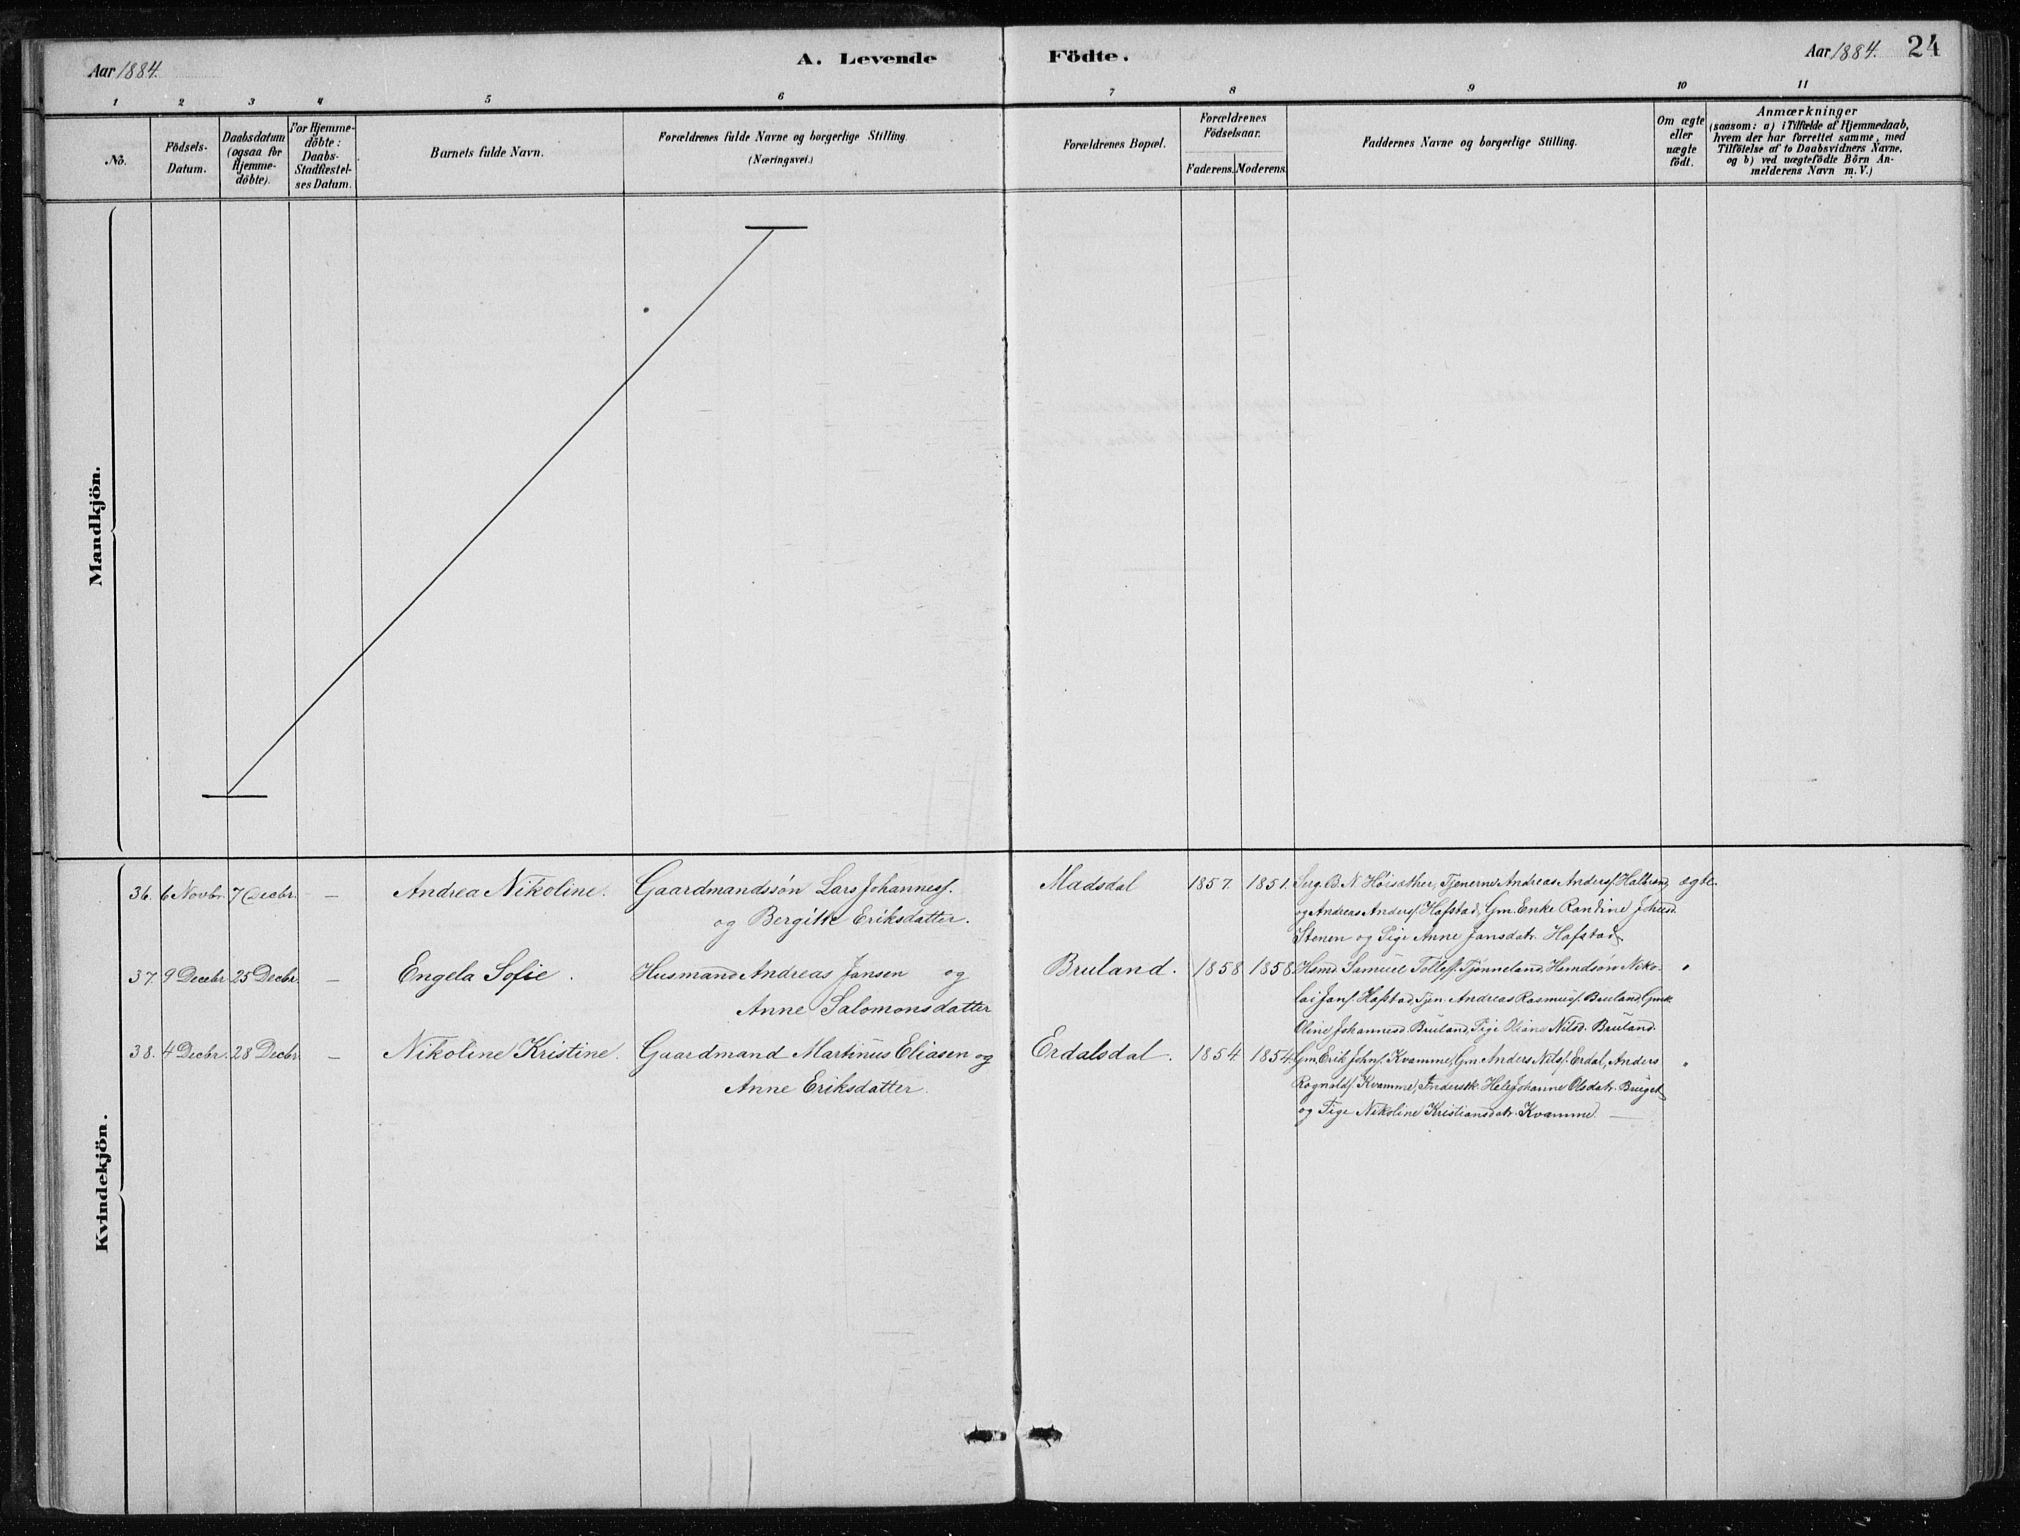 Aar 1884.
A. Levende Födte.
Aar 1884. 24
1 2 3 4 5 6 7 8 9 10 11
No.
Födsels-
Datum.
Daabsdatum
(ogsaa for
Hjemme-
döbte).
For Hjemme-
döbte:
Daabs-
Stadfæstel-
ses Datum.
Barnets fulde Navn.
Forældrenes fulde Navne og borgerlige Stilling.
(Næringsvei.)
Forældrenes Bopæl.
Forældrenes
Födselsaar.
Faderens. Moderens.
Faddernes Navne og borgerlige Stilling.
Om ægte
eller
uægte
födt.
Anmærkninger
(saasom: a) i Tilfælde af Hjemmedaab,
hvem der har forrettet samme, med
Tilföielse af to Daabsvidners Navne,
og b) ved uægtefödte Börn An-
melderens Navn m. V.)
Mandkjön.
Kvindekjön.
36. 6 Novbr. 7 Decbr. – Andrea Nikoline. Gaardmandssön Lars Johanness. Madsdal 1857. 1851. Serg. B. N. Höisæther, Tjenerne Andreas Anders. Halbrend ægte.
og Bergitte Eriksdatter. og Andreas Anders. Hafstad, Gm. Enke Randine
Stenen og Pige Anne Jansdatr. Hafstad
37. 9 Decebr 25 Decbr. – Engela Sofie. Husmand Andreas Jansen og Bruland. 1858 1858. Hsmd. Samuel Tollefs. Tjønneland, Hsmdsøn Niko- "
Anne Salomonsdatter lai Jans. Hafstad, Tjen. Andreas Rasmuss. Bruland,
Oline Johannesd. Bruland, Pige Oliane Nilsd. Bruland.
38. 4 Decbr. 28 Decbr. – Nikoline Kristine. Gaardmand Martinus Eliasen og Erdalsdal. 1854 1854. Gm. Erik Johns. Kvamme, Gm. Anders Nils. Erdal, Anders "
Anne Eriksdatter. Rognalds. Kvamme, Johanne Olsdatr. Bruget
og Pige Nikoline Kristiansdatr. Kvamme. —